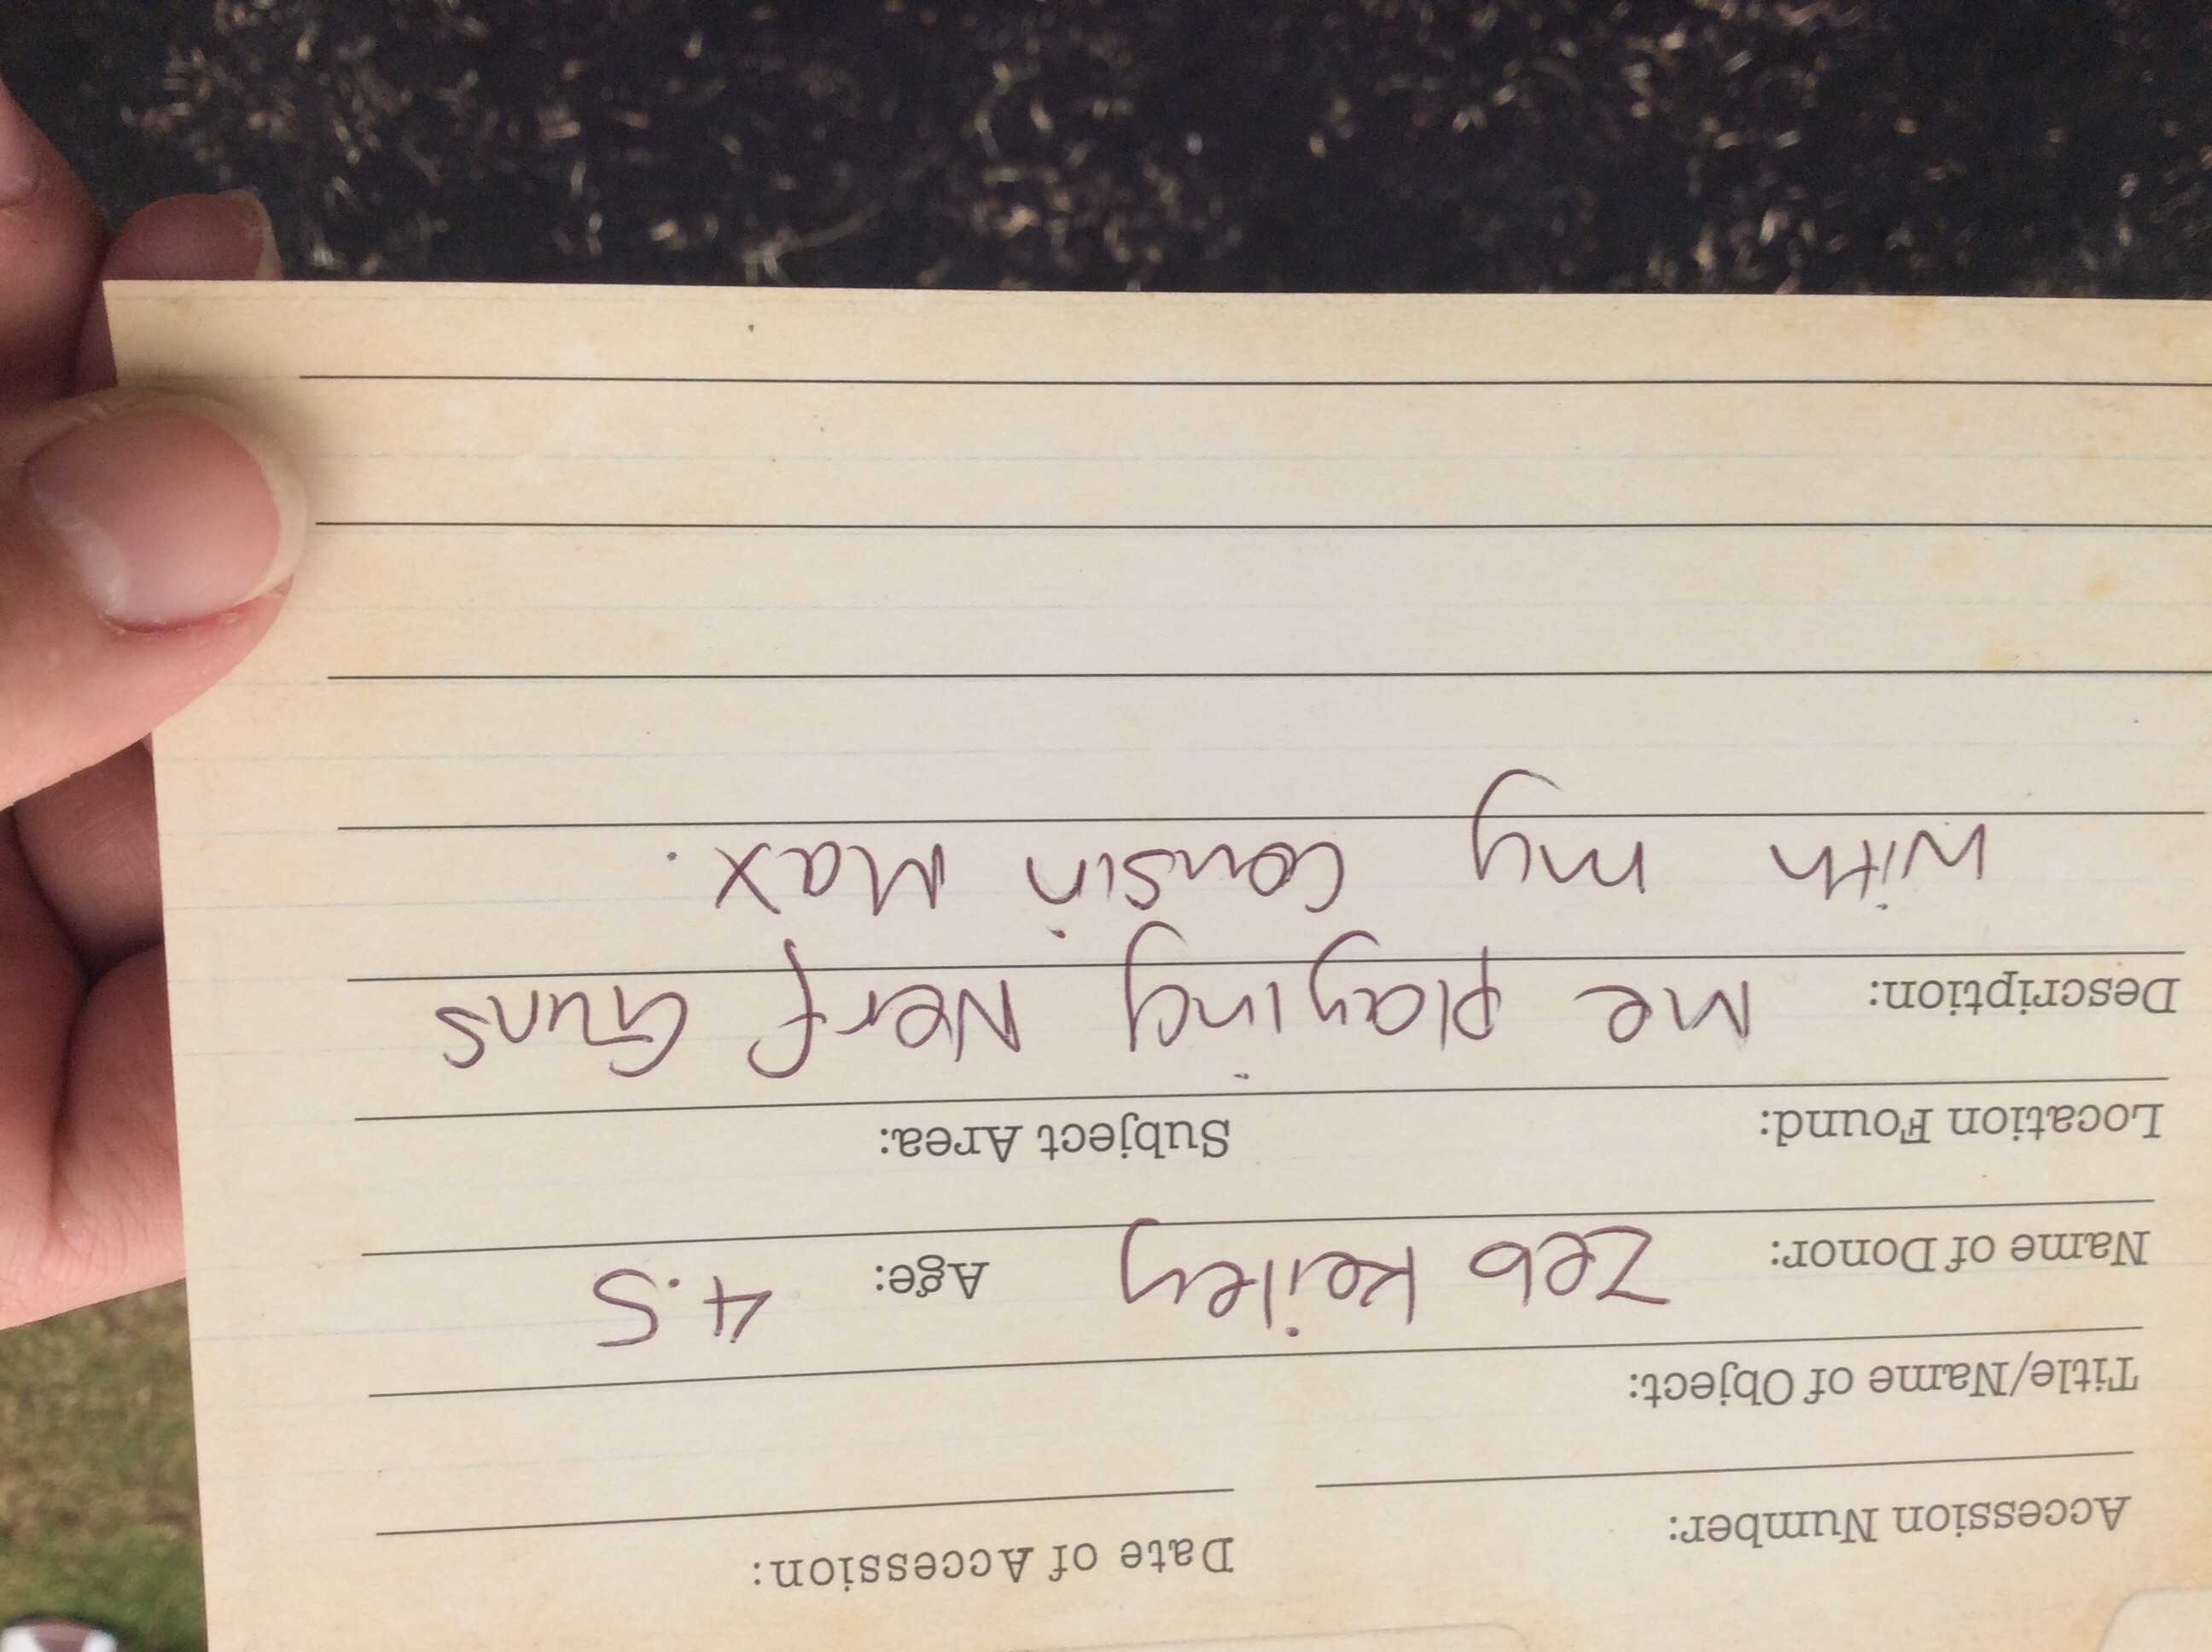 Accession Number: Date of Accession:
Title/Name of Object:
Name of Donor: Zeb Keiley Age: 4.5
Location Found: Subject Area:
Description: Me playing Nerf Guns
with my cousin Max.